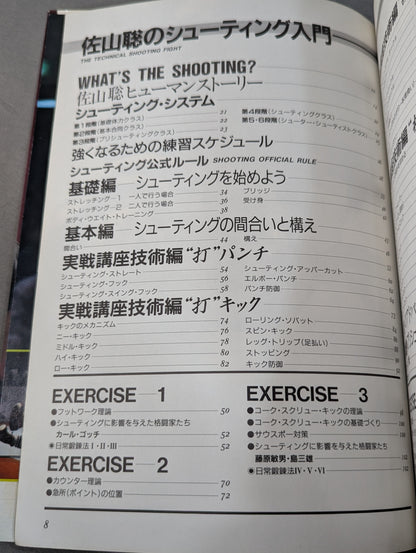 佐山聡のシューティング入門
THE TECHNICAL SHOOTING FIGHT
WHAT'S THE SHOOTING?
佐山聡ヒューマンストーリー
シューティング・システム
第1段階(基礎体力クラス) 21
第2段階(基本合同クラス) 22
第3段階(プリシューティングクラス) 23
第4段階(シューティングクラス)
第5・6段階(シューター・シューティストクラス)
強くなるための練習スケジュール
シューティング公式ルール SHOOTING OFFICIAL RULE
基礎編 シューティングを始めよう
ストレッチング—1 一人で行う場合 34
ストレッチング—2 二人で行う場合 36
ボディ・ウエイト・トレーニング 38
ブリッジ
受け身
基本編 シューティングの間合いと構え
間合い 44
構え
実戦講座技術編“打”パンチ
シューティング・ストレート 54
シューティング・フック 56
シューティング・スイング・フック 58
シューティング・アッパーカット
エルボー・パンチ
パンチ防御
実戦講座技術編“打”キック
キックのメカニズム 74
ニー・キック 76
ミドル・キック 78
ハイ・キック 80
ロー・キック 82
ローリング・ソバット
スピン・キック
レッグ・トリップ(足払い)
ストッピング
キック防御
EXERCISE—1
●フットワーク理論 50
●シューティングに影響を与えた格闘家たち
カール・ゴッチ 52
◉日常鍛錬法I・II・III 52
EXERCISE—2
●カウンター理論 70
●急所(ポイント)の位置 72
EXERCISE—3
●コーク・スクリュー・キックの理論
●コーク・スクリュー・キックの基礎づくり
●サウスポー対策
●シューティングに影響を与えた格闘家たち
藤原敏男・島三雄
◉日常鍛錬法IV・V・VI
8